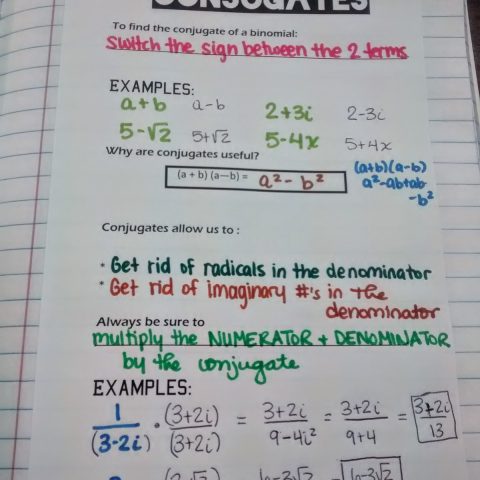 CONJUGATES
To find the conjugate of a binomial:
Switch the sign between the 2 terms
EXAMPLES:
a+b a-b 2+3i 2-3i
5-√2 5+√2 5-4x 5+4x
Why are conjugates useful?
(a + b) (a—b) = a²- b²
(a+b)(a-b)
a²-ab+ab
-b²
Conjugates allow us to :
* Get rid of radicals in the denominator
* Get rid of imaginary #'s in the
denominator
Always be sure to
multiply the NUMERATOR + DENOMINATOR
by the conjugate
EXAMPLES:
1/(3-2i) · (3+2i)/(3+2i) = 3+2i/9-4i² = 3+2i/9+4 = 3+2i/13